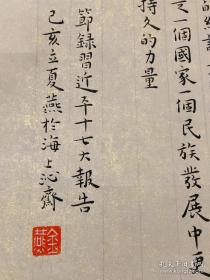 是一個國家一個民族發展中更
持久的力量
節録習近平十七大報告
己亥立夏燕於海上沁齋